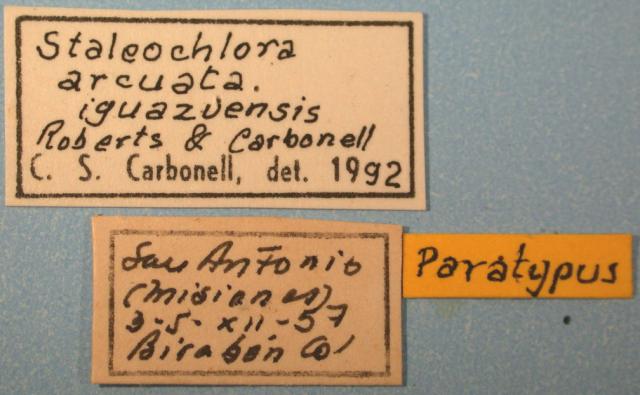 Staleochlora
arcuata.
iguazuensis
Roberts & Carbonell
C. S. Carbonell, det. 1992
San Antonio
(Misiones)
3-5-XII-57
Birabén Col
Paratypus